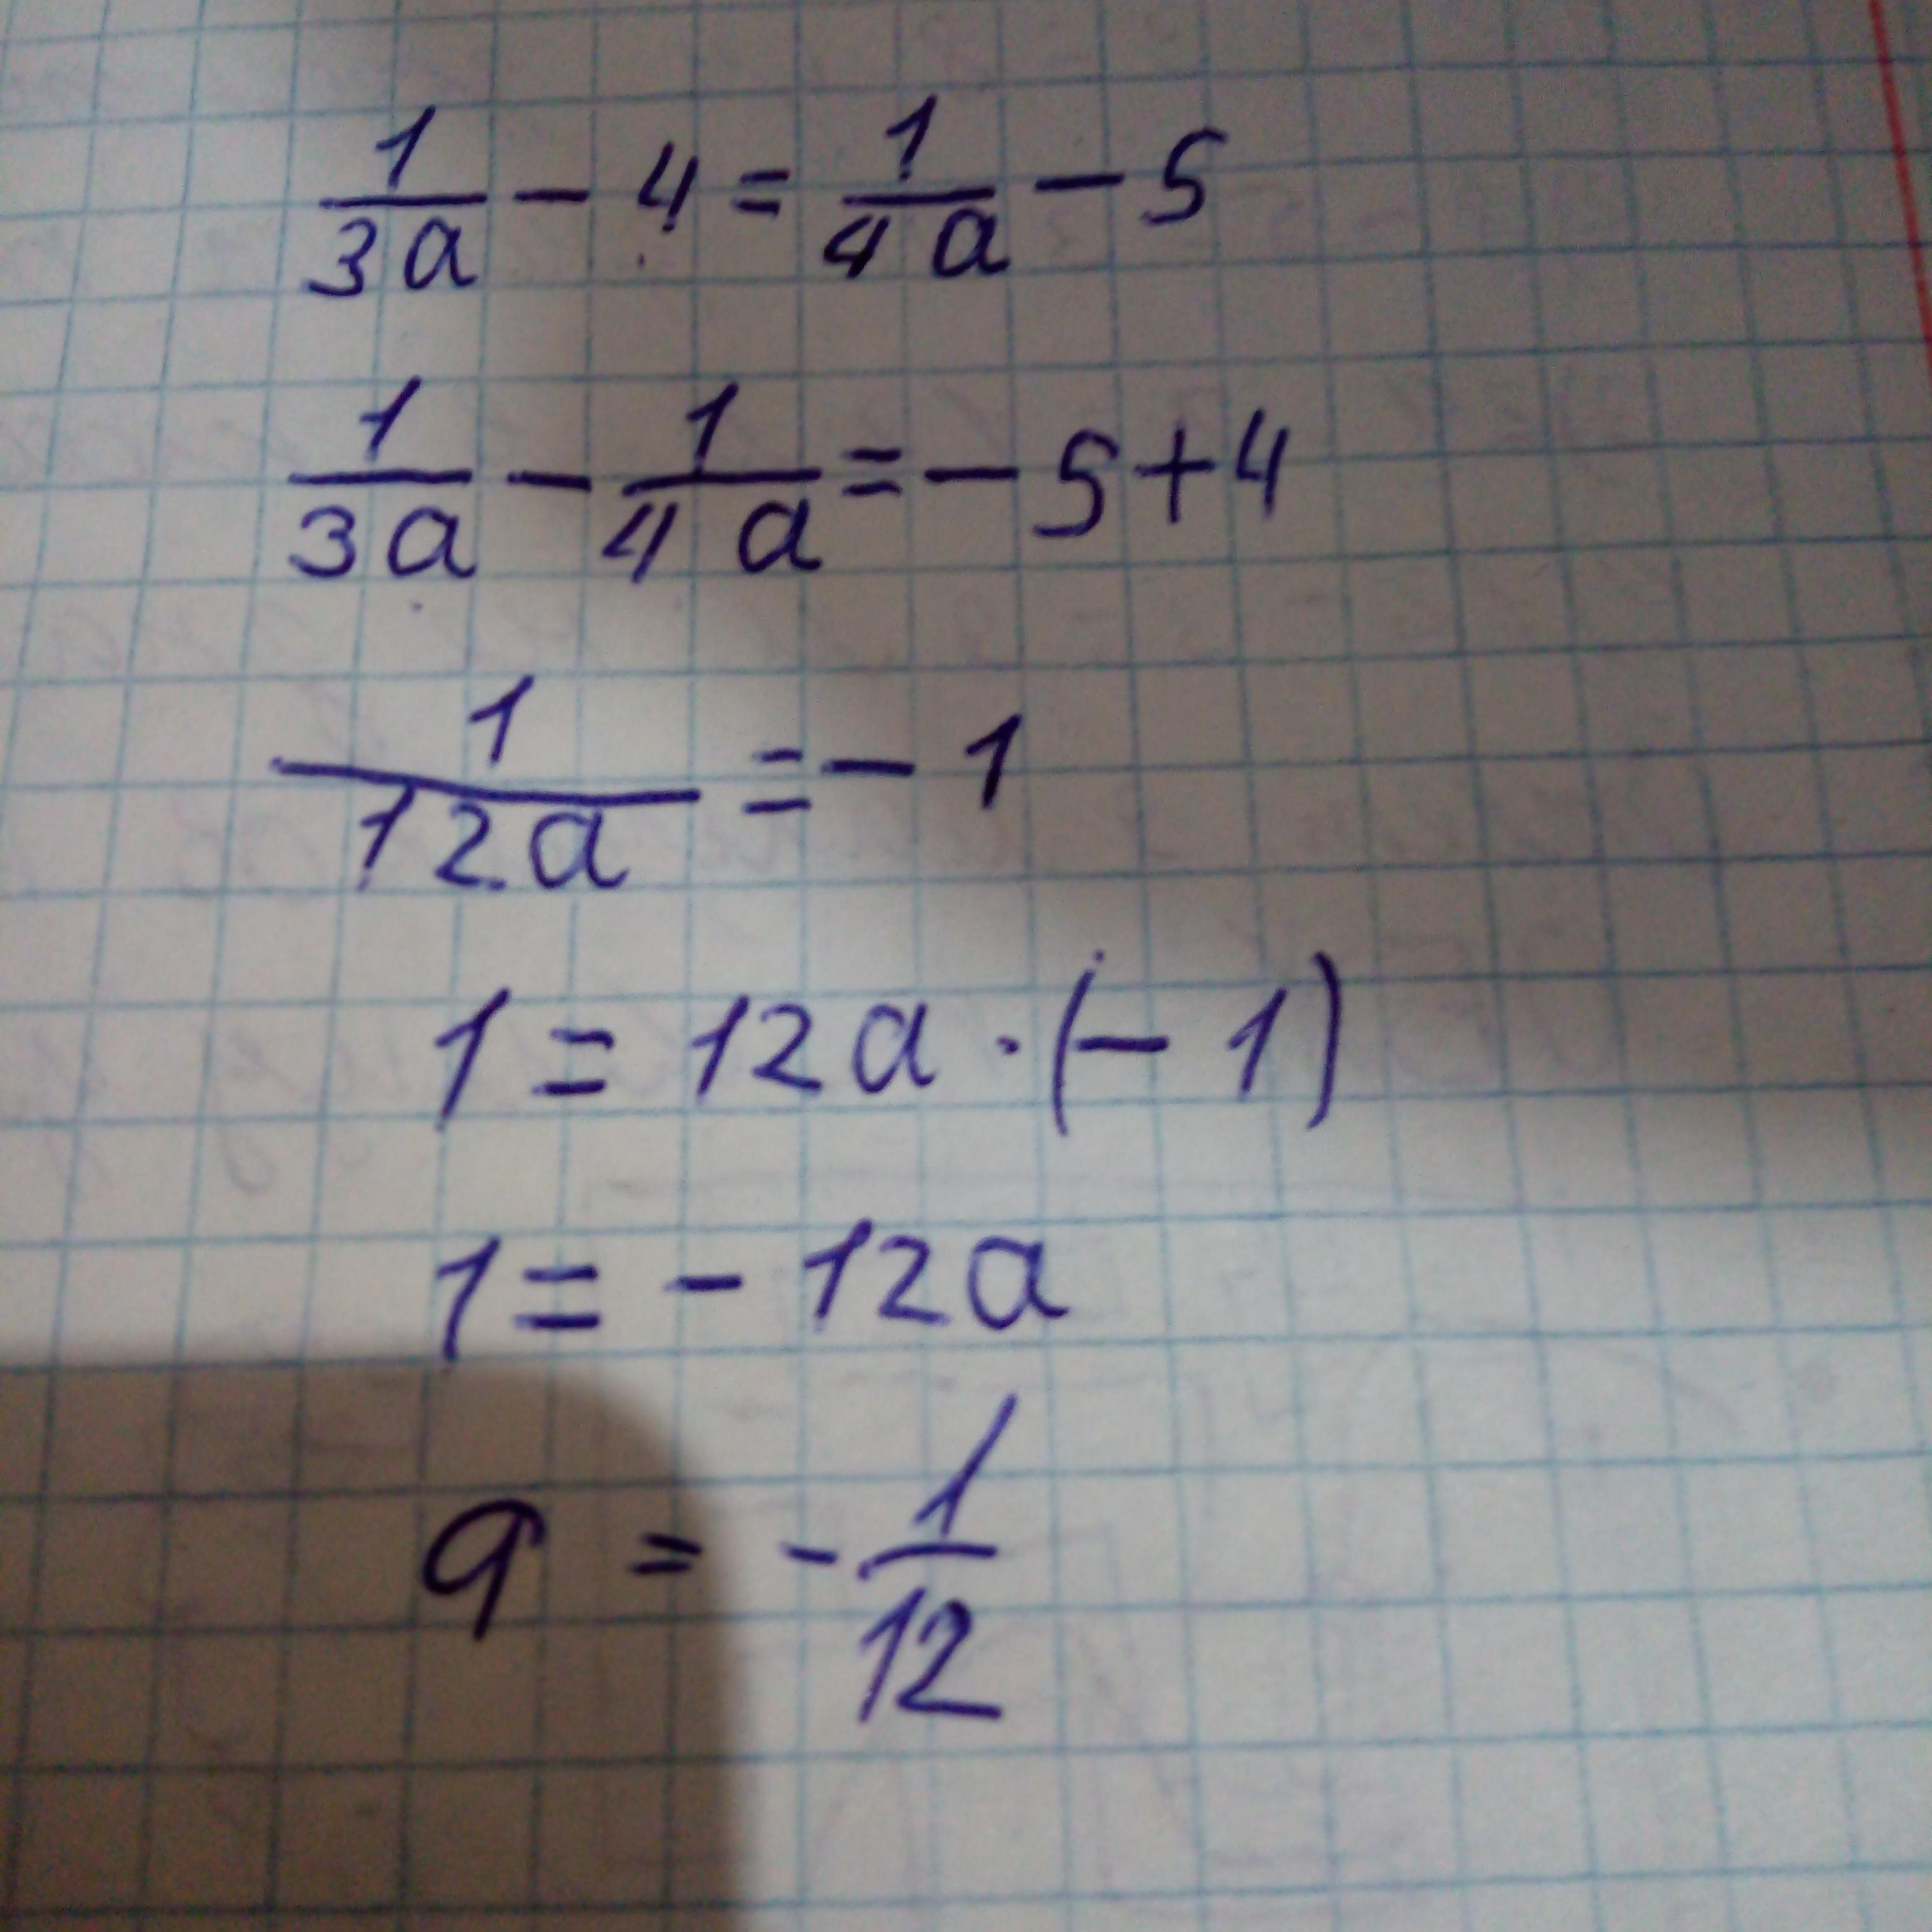 1/3a - 4 = 1/4a - 5
1/3a - 1/4a = - 5 + 4
1/12a = - 1
1 = 12a · (- 1)
1 = - 12a
a = - 1/12